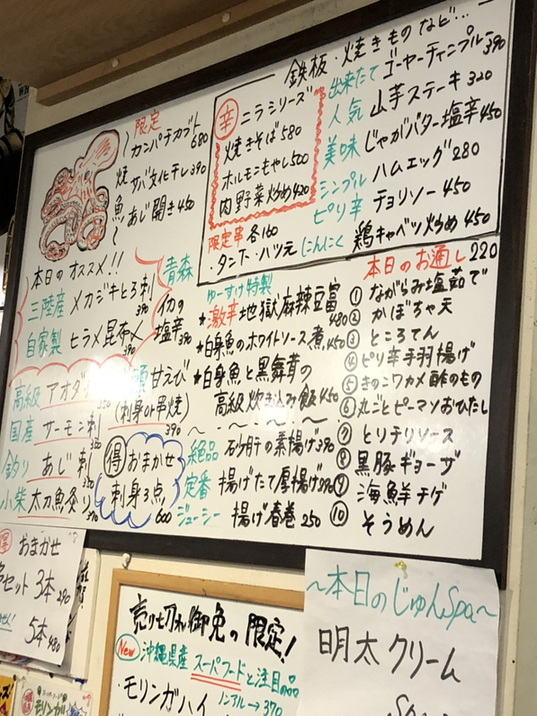 限定
カンパチカブト 680
焼 サバ文化干し 390
魚 あじ開き 450
鉄板・焼きものなど…
辛 ニラシリーズ
焼きそば 580
ホルモンもやし 500
肉野菜炒め 420
限定串 各140
・タン下・ハツ元
出来たて ゴーヤーチャンプルー 390
人気 山芋ステーキ 320
美味 じゃがバター塩辛 450
シンプル ハムエッグ 280
ピリ辛 チョリソー 450
にんにく 鶏キャベツ炒め 450
本日のオススメ!!
三陸産 メカジキとろ刺 390
自家製 ヒラメ昆布〆 390
青森 イカの塩辛 390
高級 アオダ
国産 サーモン刺
釣り あじ刺
小柴 太刀魚炙り
甘えび
(刺身or串焼)
得 おまかせ
刺身3点 600
ゆーすけ特製
★激辛 地獄麻辣豆富 480
★白身魚のホワイトソース煮 450
★白身魚と黒舞茸の
高級炊き込み飯 450
絶品 砂肝の素揚げ 390
定番 揚げたて厚揚げ
ジューシー 揚げ春巻 250
本日のお通し 220
① ながらみ塩茹で
② かぼちゃ天
③ ところてん
④ ピリ辛手羽揚げ
⑤ きのこワカメ酢のもの
⑥ 丸ごとピーマンおひたし
⑦ とりチリソース
⑧ 黒豚ギョーザ
⑨ 海鮮チゲ
⑩ そうめん
得 おまかせ
セット 3本
5本 480
売り切れ御免の限定!
New 沖縄県産 スーパーフードと注目の品
・モリンガハイ
ノンアル→370
〜本日のじゅんSpa〜
明太クリーム
Spa